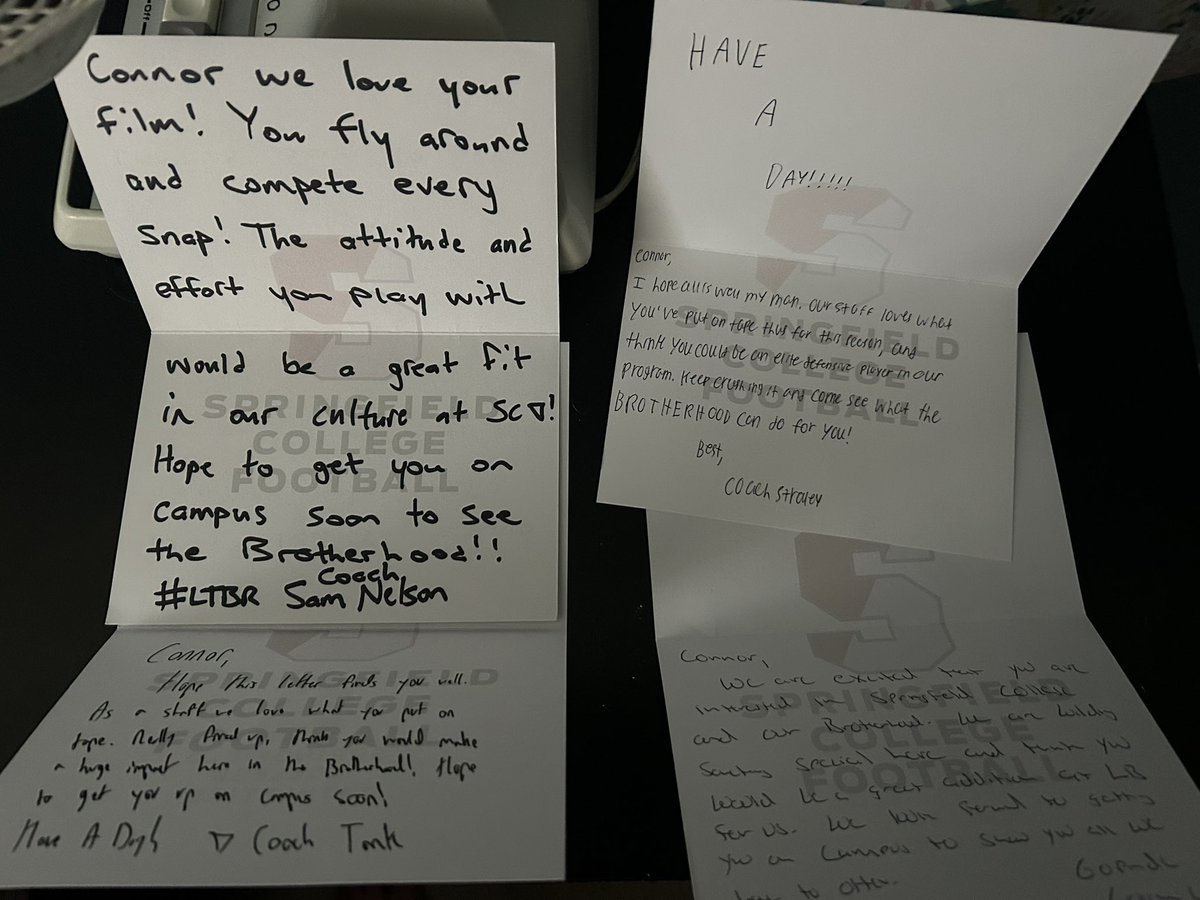 Connor we love your
film! You fly around
and compete every
snap! The attitude and
effort you play with
would be a great fit
in our culture at SC∇!
Hope to get you on
campus soon to see
the Brotherhood!!
#LTBR Coach Sam Nelson
SPRINGFIELD
COLLEGE
FOOTBALL
HAVE
A
DAY!!!!!
Connor,
I hope all is well my man. Our staff loves what
you've put on tape thus far this season, and
think you could be an elite defensive player in our
program. Keep crushing it and come see what the
BROTHERHOOD can do for you!
Best,
Coach Straley
SPRINGFIELD
COLLEGE
FOOTBALL
Connor,
Hope this letter finds you well.
As a staff we love what you put on
tape. Really fired up, think you would make
a huge impact here in the Brotherhood! Hope
to get you up on campus soon!
Have A Day! ∇ Coach Tonk
SPRINGFIELD
COLLEGE
FOOTBALL
Connor,
We are excited that you are
interested in Springfield College
and our Brotherhood. We are building
something special here and think you
would be a great addition at LB
for us. We look forward to getting
you on campus to show you all we
have to offer.
SPRINGFIELD
COLLEGE
FOOTBALL